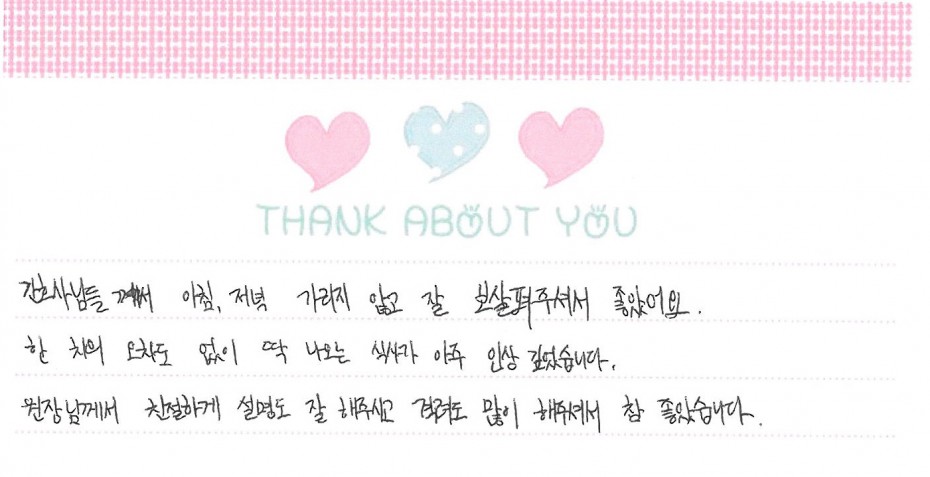 THANK ABOUT YOU
간호사님들 께서 아침, 저녁 가리지 않고 잘 보살펴주셔서 좋았어요.
한 치의 오차도 없이 딱 나오는 식사가 아주 인상 깊었습니다.
원장님께서 친절하게 설명도 잘 해주시고 격려도 많이 해주셔서 참 좋았습니다.